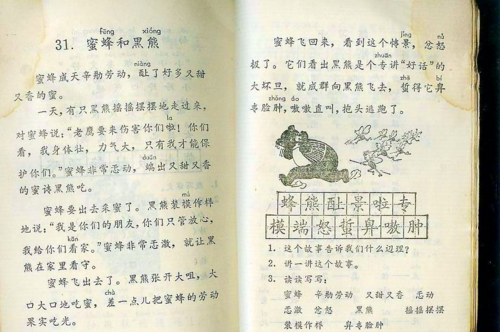 fēng xióng
31. 蜜蜂和黑熊
niàng
蜜蜂成天辛勤劳动，酿了好多又甜
又香的蜜。
一天，有只黑熊摇摇摆摆地走过来，
la
对蜜蜂说：“老鹰要来伤害你们啦！你们
看，我身体壮，力气大，只有我才能保
duān
护你们。”蜜蜂非常感动，端出又甜又香
的蜜请黑熊吃。
mú
蜜蜂要出去采蜜了。黑熊装模作样
地说：“我是你们的朋友，你们只管放心，
我给你们看家。”蜜蜂非常感激，就让黑
熊在家里看守。
蜜蜂飞出去了。黑熊张开大咀，大
chà
口大口地吃蜜，差一点儿把蜜蜂的劳动
果实吃光。
jǐng nù
蜜蜂飞回来，看到这个情景，忿怒
zhuān
极了。它们看出黑熊是个专讲“好话”的
zhē bí
大坏旦，就成群向黑熊飞去，蜇得它鼻
zhǒng áo
青脸肿，嗷嗷直叫，抱头逃跑了。
蜂熊酿景啦专
模端怒蜇鼻嗷肿
1. 这个故事告诉我们什么道理？
2. 讲一讲这个故事。
3. 读读写写：
蜜蜂 辛勤劳动 又甜又香 感动
感激 忿怒 黑熊 摇摇摆摆
装模作样 鼻青脸肿